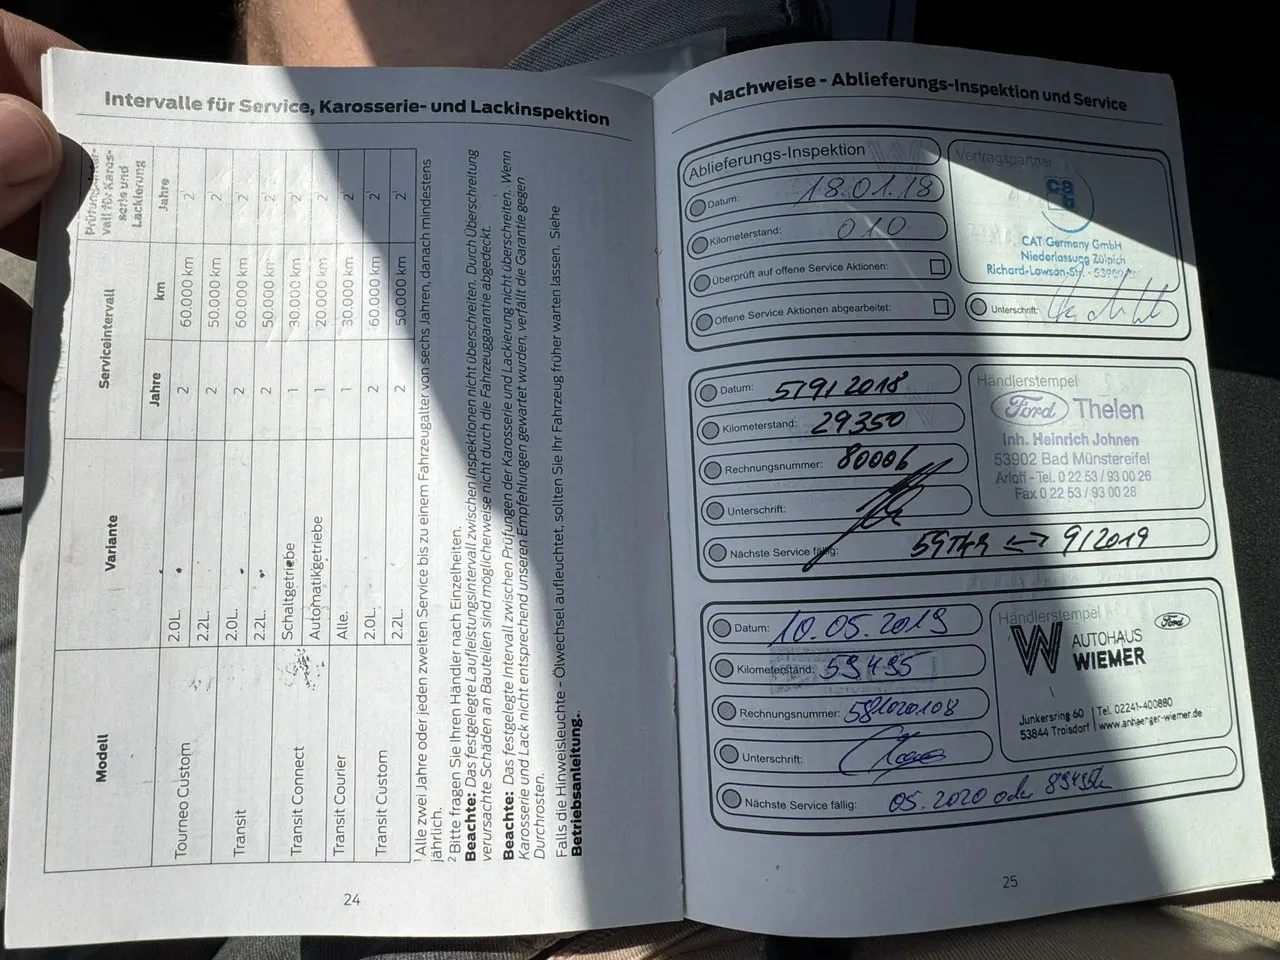 Intervalle für Service, Karosserie- und Lackinspektion
Modell Variante Serviceintervall Prüfungsinter-
vall für Karos-
serie und
Lackierung
Jahre km Jahre
Tourneo Custom 2.0L. 2 60.000 km 2¹
2.2L. 2 50.000 km 2¹
Transit 2.0L. 2 60.000 km 2¹
2.2L. 2 50.000 km 2¹
Transit Connect Schaltgetriebe 1 30.000 km 2¹
Automatikgetriebe 1 20.000 km 2¹
Transit Courier Alle. 1 30.000 km 2¹
Transit Custom 2.0L. 2 60.000 km 2¹
2.2L. 2 50.000 km 2¹
¹ Alle zwei Jahre oder jeden zweiten Service bis zu einem Fahrzeugalter von sechs Jahren, danach mindestens
jährlich.
² Bitte fragen Sie Ihren Händler nach Einzelheiten.
Beachte: Das festgelegte Laufleistungsintervall zwischen Inspektionen nicht überschreiten. Durch Überschreitung
verursachte Schäden an Bauteilen sind möglicherweise nicht durch die Fahrzeuggarantie abgedeckt.
Beachte: Das festgelegte Intervall zwischen Prüfungen der Karosserie und Lackierung nicht überschreiten. Wenn
Karosserie und Lack nicht entsprechend unseren Empfehlungen gewartet wurden, verfällt die Garantie gegen
Durchrosten.
Falls die Hinweisleuchte - Ölwechsel aufleuchtet, sollten Sie Ihr Fahrzeug früher warten lassen. Siehe
Betriebsanleitung.
24
Nachweise - Ablieferungs-Inspektion und Service
Ablieferungs-Inspektion
Datum: 18.01.18
Kilometerstand: 010
Überprüft auf offene Service Aktionen:
Offene Service Aktionen abgearbeitet:
Vertragspartner
CAT Germany GmbH
Niederlassung Zülpich
Richard-Lawson-Str. · 53909
Unterschrift:
Datum: 5/9/2018
Kilometerstand: 29350
Rechnungsnummer: 80006
Unterschrift:
Nächste Service fällig: 59Tkm 9/2019
Händlerstempel
Ford Thelen
Inh. Heinrich Johnen
53902 Bad Münstereifel
Arloff - Tel. 0 22 53 / 93 00 26
Fax 0 22 53 / 93 00 28
Datum: 10.05.2019
Kilometerstand: 59495
Rechnungsnummer: 581020108
Unterschrift:
Nächste Service fällig: 05.2020 oder
Händlerstempel
Ford
W AUTOHAUS
WIEMER
Junkersring 60 | Tel. 02241-400880
53844 Troisdorf | www.anhaenger-wiemer.de
25